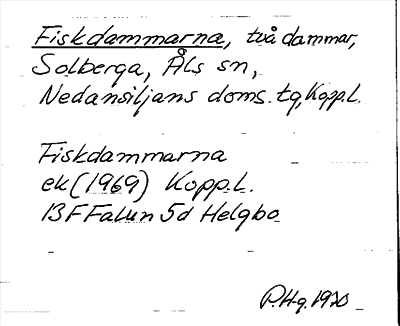 Fiskdammarna, två dammar,
Solberga, Åls sn,
Nedansiljans doms. tg, Kopp.l.
Fiskdammarna
ek (1969) Kopp.l.
13F Falun 5d Helgbo
P.Hg. 1970